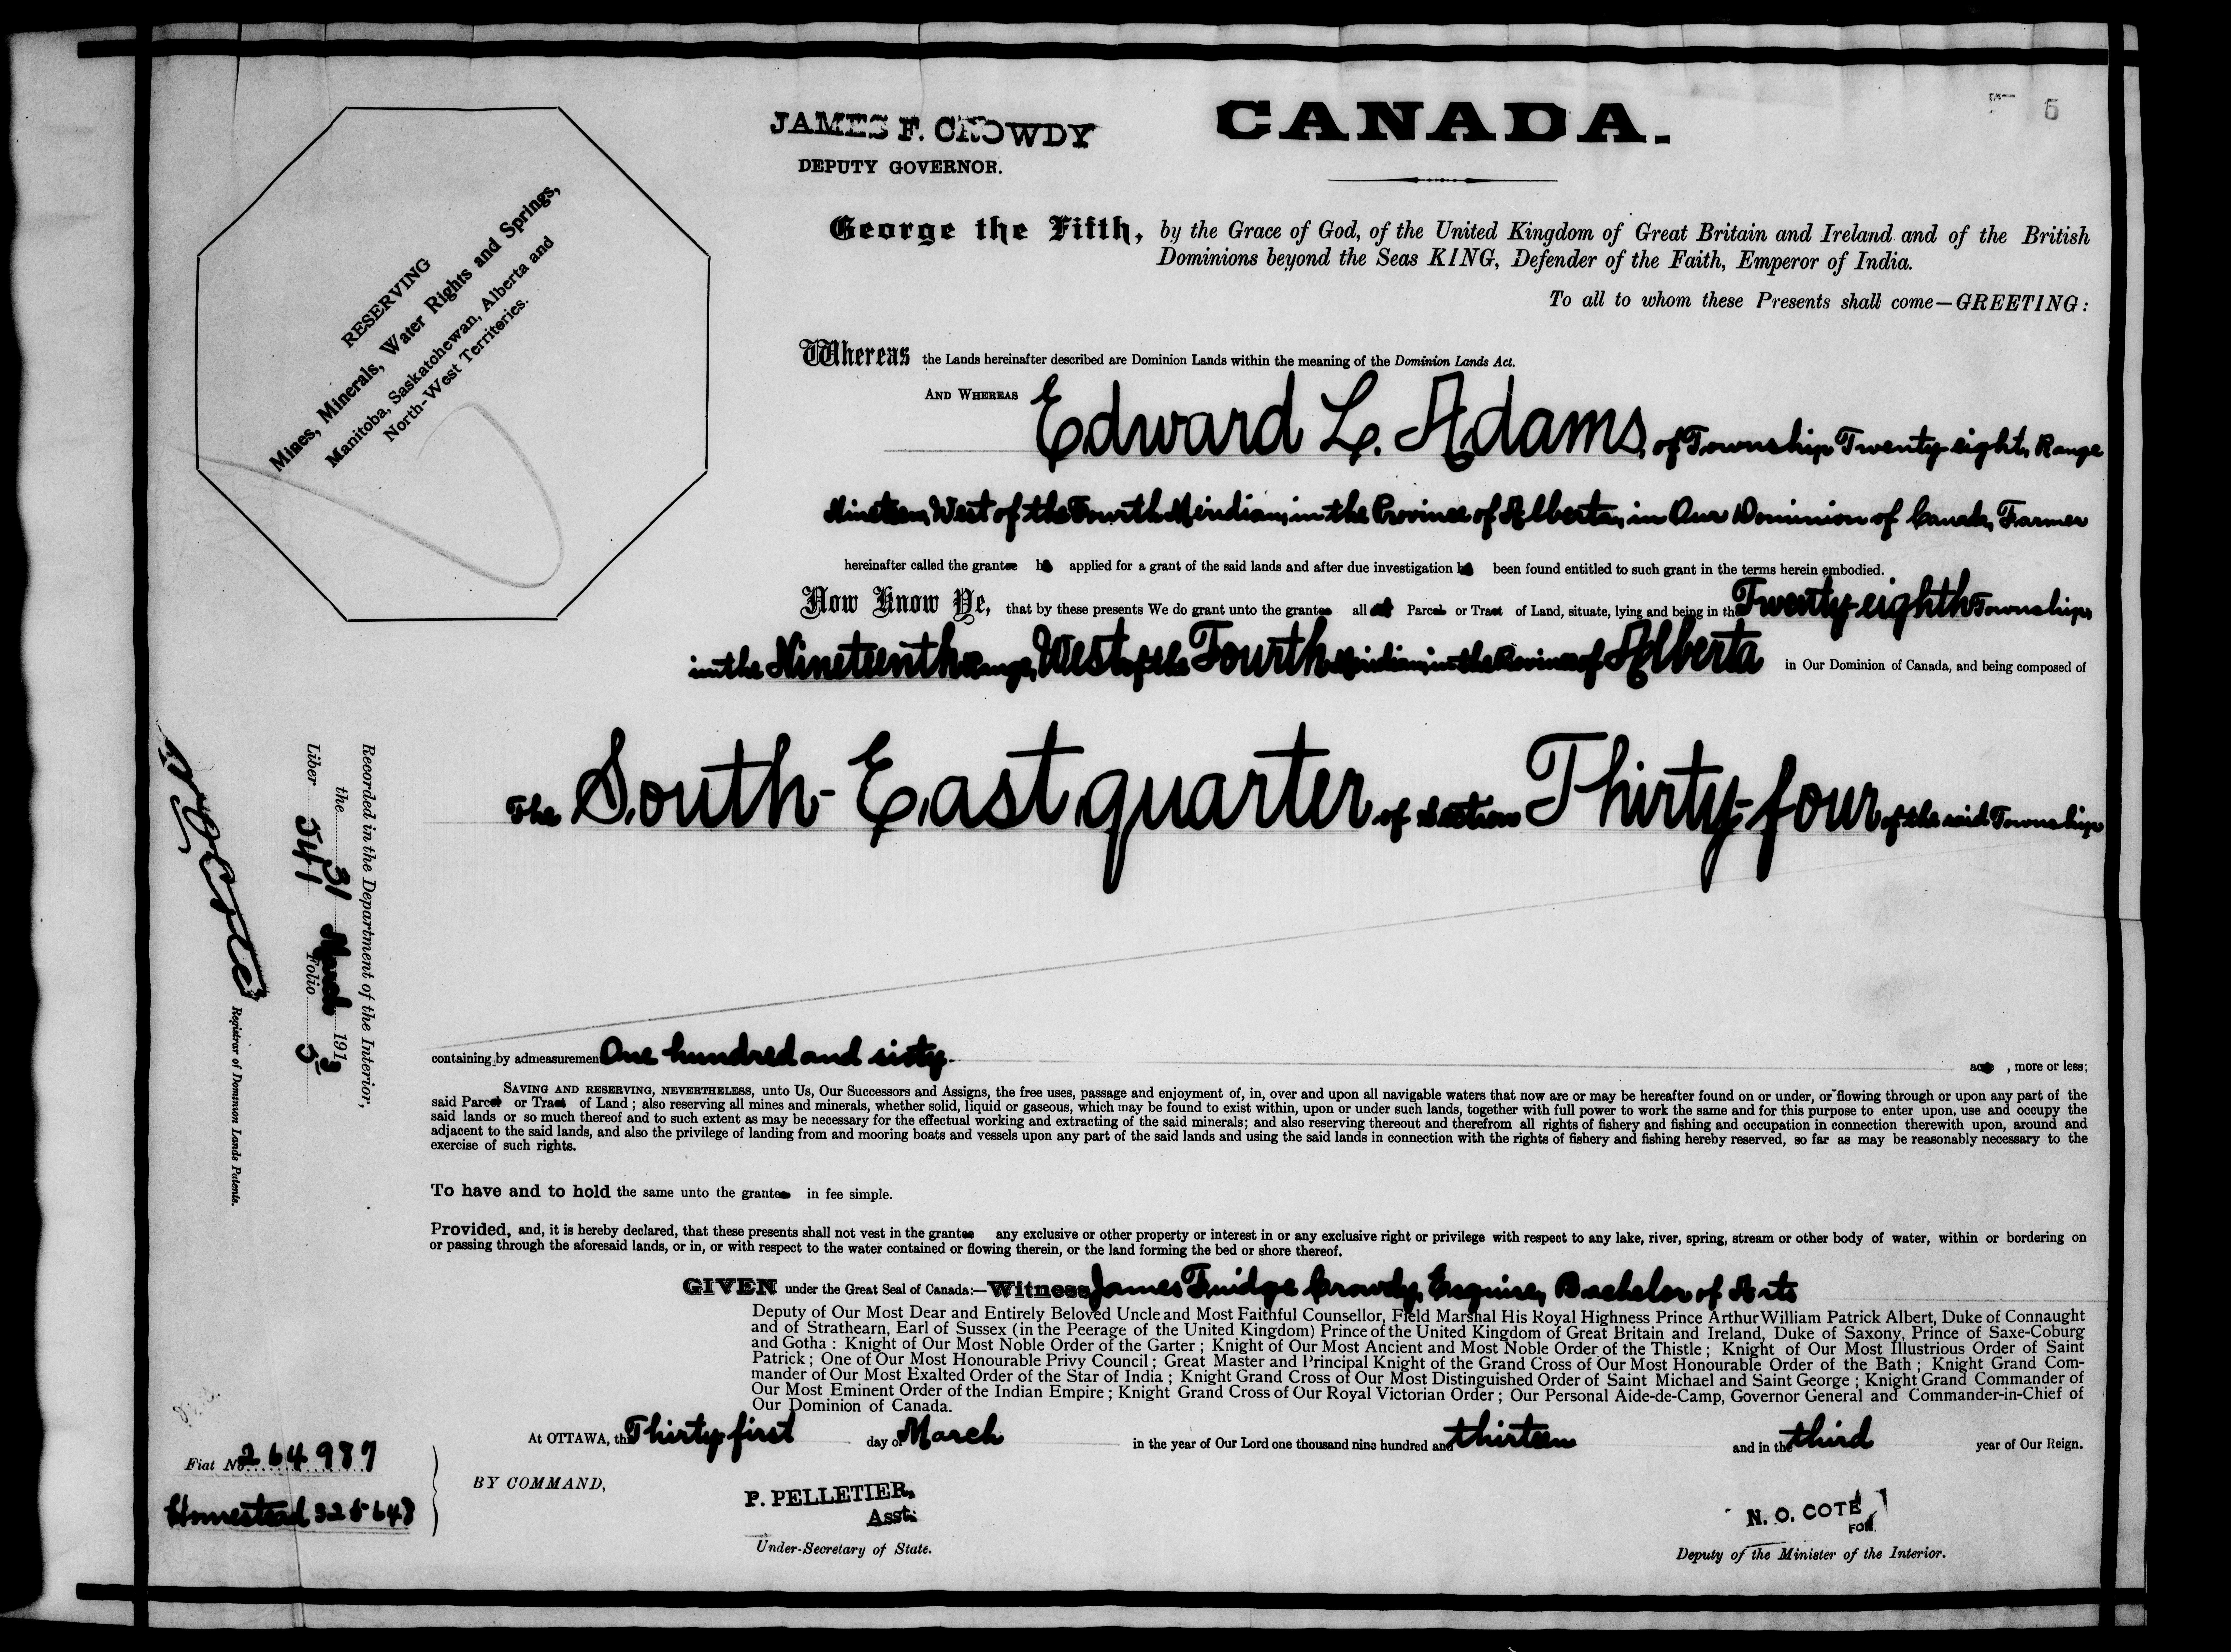 CANADA.
5
JAMES F. CROWDY
DEPUTY GOVERNOR.
RESERVING
Mines, Minerals, Water Rights and Springs,
Manitoba, Saskatchewan, Alberta and
North-West Territories.
George the Fifth, by the Grace of God, of the United Kingdom of Great Britain and Ireland and of the British
Dominions beyond the Seas KING, Defender of the Faith, Emperor of India.
To all to whom these Presents shall come—GREETING:
Whereas the Lands hereinafter described are Dominion Lands within the meaning of the Dominion Lands Act.
AND WHEREAS Edward L. Adams, of Township Twenty-eight, Range
Nineteen, West of the Fourth Meridian, in the Province of Alberta, in Our Dominion of Canada, Farmer
hereinafter called the grantee has applied for a grant of the said lands and after due investigation has been found entitled to such grant in the terms herein embodied.
Now Know Ye, that by these presents We do grant unto the grantee all that Parcel or Tract of Land, situate, lying and being in the Twenty-eighth Township,
in the Nineteenth Range, West of the Fourth Meridian, in the Province of Alberta in Our Dominion of Canada, and being composed of
The South-East quarter of Section Thirty-four of the said Township
containing by admeasurement One hundred and sixty acre , more or less;
SAVING AND RESERVING, NEVERTHELESS, unto Us, Our Successors and Assigns, the free uses, passage and enjoyment of, in, over and upon all navigable waters that now are or may be hereafter found on or under, or flowing through or upon any part of the
said Parcel or Tract of Land ; also reserving all mines and minerals, whether solid, liquid or gaseous, which may be found to exist within, upon or under such lands, together with full power to work the same and for this purpose to enter upon, use and occupy the
said lands or so much thereof and to such extent as may be necessary for the effectual working and extracting of the said minerals; and also reserving thereout and therefrom all rights of fishery and fishing and occupation in connection therewith upon, around and
adjacent to the said lands, and also the privilege of landing from and mooring boats and vessels upon any part of the said lands and using the said lands in connection with the rights of fishery and fishing hereby reserved, so far as may be reasonably necessary to the
exercise of such rights.
To have and to hold the same unto the grantee in fee simple.
Provided, and, it is hereby declared, that these presents shall not vest in the grantee any exclusive or other property or interest in or any exclusive right or privilege with respect to any lake, river, spring, stream or other body of water, within or bordering on
or passing through the aforesaid lands, or in, or with respect to the water contained or flowing therein, or the land forming the bed or shore thereof.
GIVEN under the Great Seal of Canada:—Witness James Fuidge Crowdy, Esquire, Bachelor of Arts
Deputy of Our Most Dear and Entirely Beloved Uncle and Most Faithful Counsellor, Field Marshal His Royal Highness Prince Arthur William Patrick Albert, Duke of Connaught
and of Strathearn, Earl of Sussex (in the Peerage of the United Kingdom) Prince of the United Kingdom of Great Britain and Ireland, Duke of Saxony, Prince of Saxe-Coburg
and Gotha : Knight of Our Most Noble Order of the Garter ; Knight of Our Most Ancient and Most Noble Order of the Thistle ; Knight of Our Most Illustrious Order of Saint
Patrick ; One of Our Most Honourable Privy Council ; Great Master and Principal Knight of the Grand Cross of Our Most Honourable Order of the Bath ; Knight Grand Com-
mander of Our Most Exalted Order of the Star of India ; Knight Grand Cross of Our Most Distinguished Order of Saint Michael and Saint George ; Knight Grand Commander of
Our Most Eminent Order of the Indian Empire ; Knight Grand Cross of Our Royal Victorian Order ; Our Personal Aide-de-Camp, Governor General and Commander-in-Chief of
Our Dominion of Canada.
At OTTAWA, the Thirty-first day of March in the year of Our Lord one thousand nine hundred and thirteen and in the third year of Our Reign.
BY COMMAND,
P. PELLETIER,
Asst.
Under-Secretary of State.
N. O. COTE
FOR
Deputy of the Minister of the Interior.
Recorded in the Department of the Interior,
the 31 March 1913
Liber 541 Folio 5
N O Cote
Registrar of Dominion Lands Patents.
Fiat No 264987
Homestead 325648